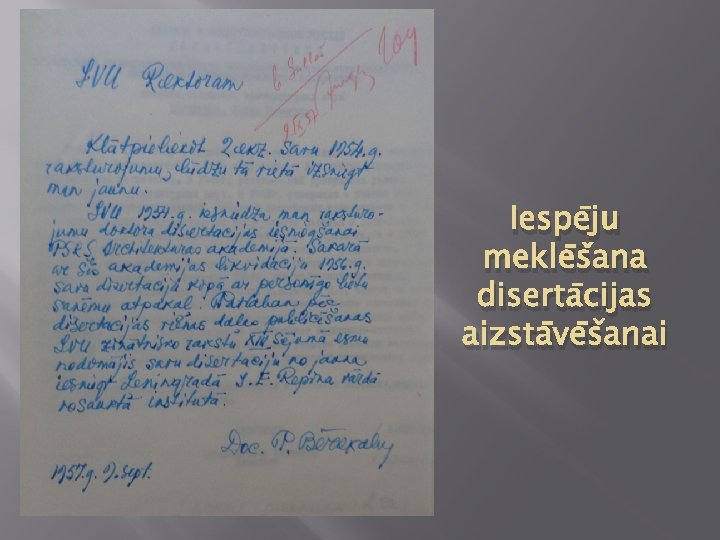 LVU Rektoram
Klātpieliekot 2 eks. savu 1954.g.
raksturojumu, lūdzu tā vietā izsniegt
man jaunu.
LVU 1954.g. iesniedza man raksturo-
jumu doktora disertācijas iesniegšanai
PSRS Architektūras akadēmijā. Sakarā
ar šīs akadēmijas likvidāciju 1956.g.
savu disertāciju kopā ar personīgo lietu
saņēmu atpakaļ. Patlaban pēc
disertācijas vienas daļas publicēšanas
LVU zinātnisko rakstu XIII sējumā esmu
nodomājis savu disertāciju no jauna
iesniegt Ļeņingradā I. E. Repina vārdā
nosauktā institutā.
Doc. P. Bērzkalns
1957.g. 9. sept.
Iespēju
meklēšana
disertācijas
aizstāvēšanai